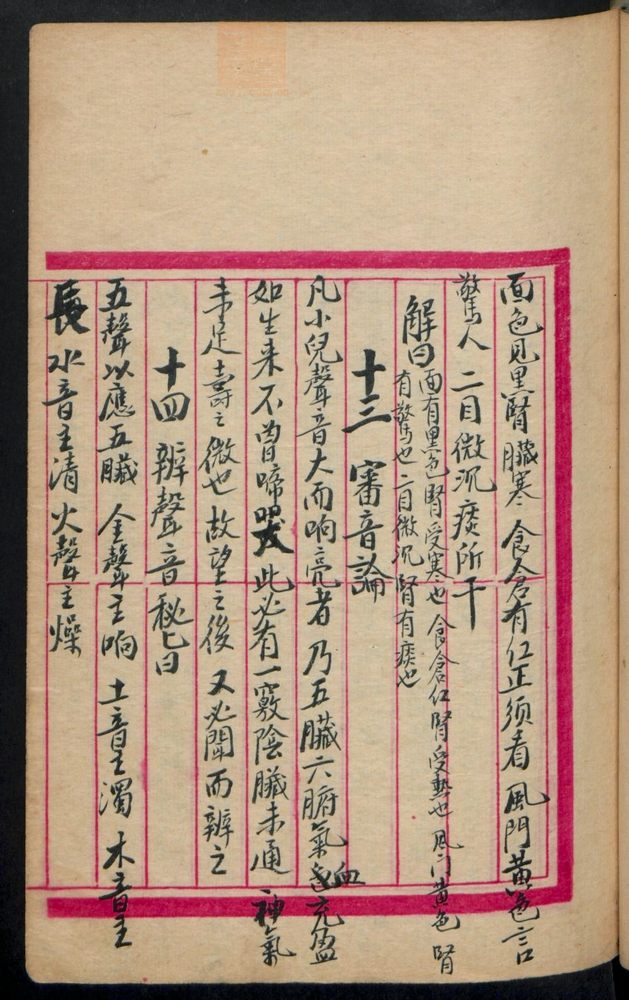 面色見黑腎臟寒 食倉有紅正須看 風門黃色言
驚人 二目微沉痰所干
解曰 面有黑色腎受寒也 食倉紅腎受熱也 風门黃色 腎
有驚也 二目微沉腎有痰也
十三 審音論
凡小兒聲音大而响亮者 乃五臟六腑氣血充盈
如生来不曾啼哭 此必有一竅陰臟未通 神氣
未足 壽之微也 故望之後 又必聞而辨之
十四 辨聲音秘曰
五聲以應五臟 金聲主响 土音主濁 木音主
長 水音主清 火聲主燥